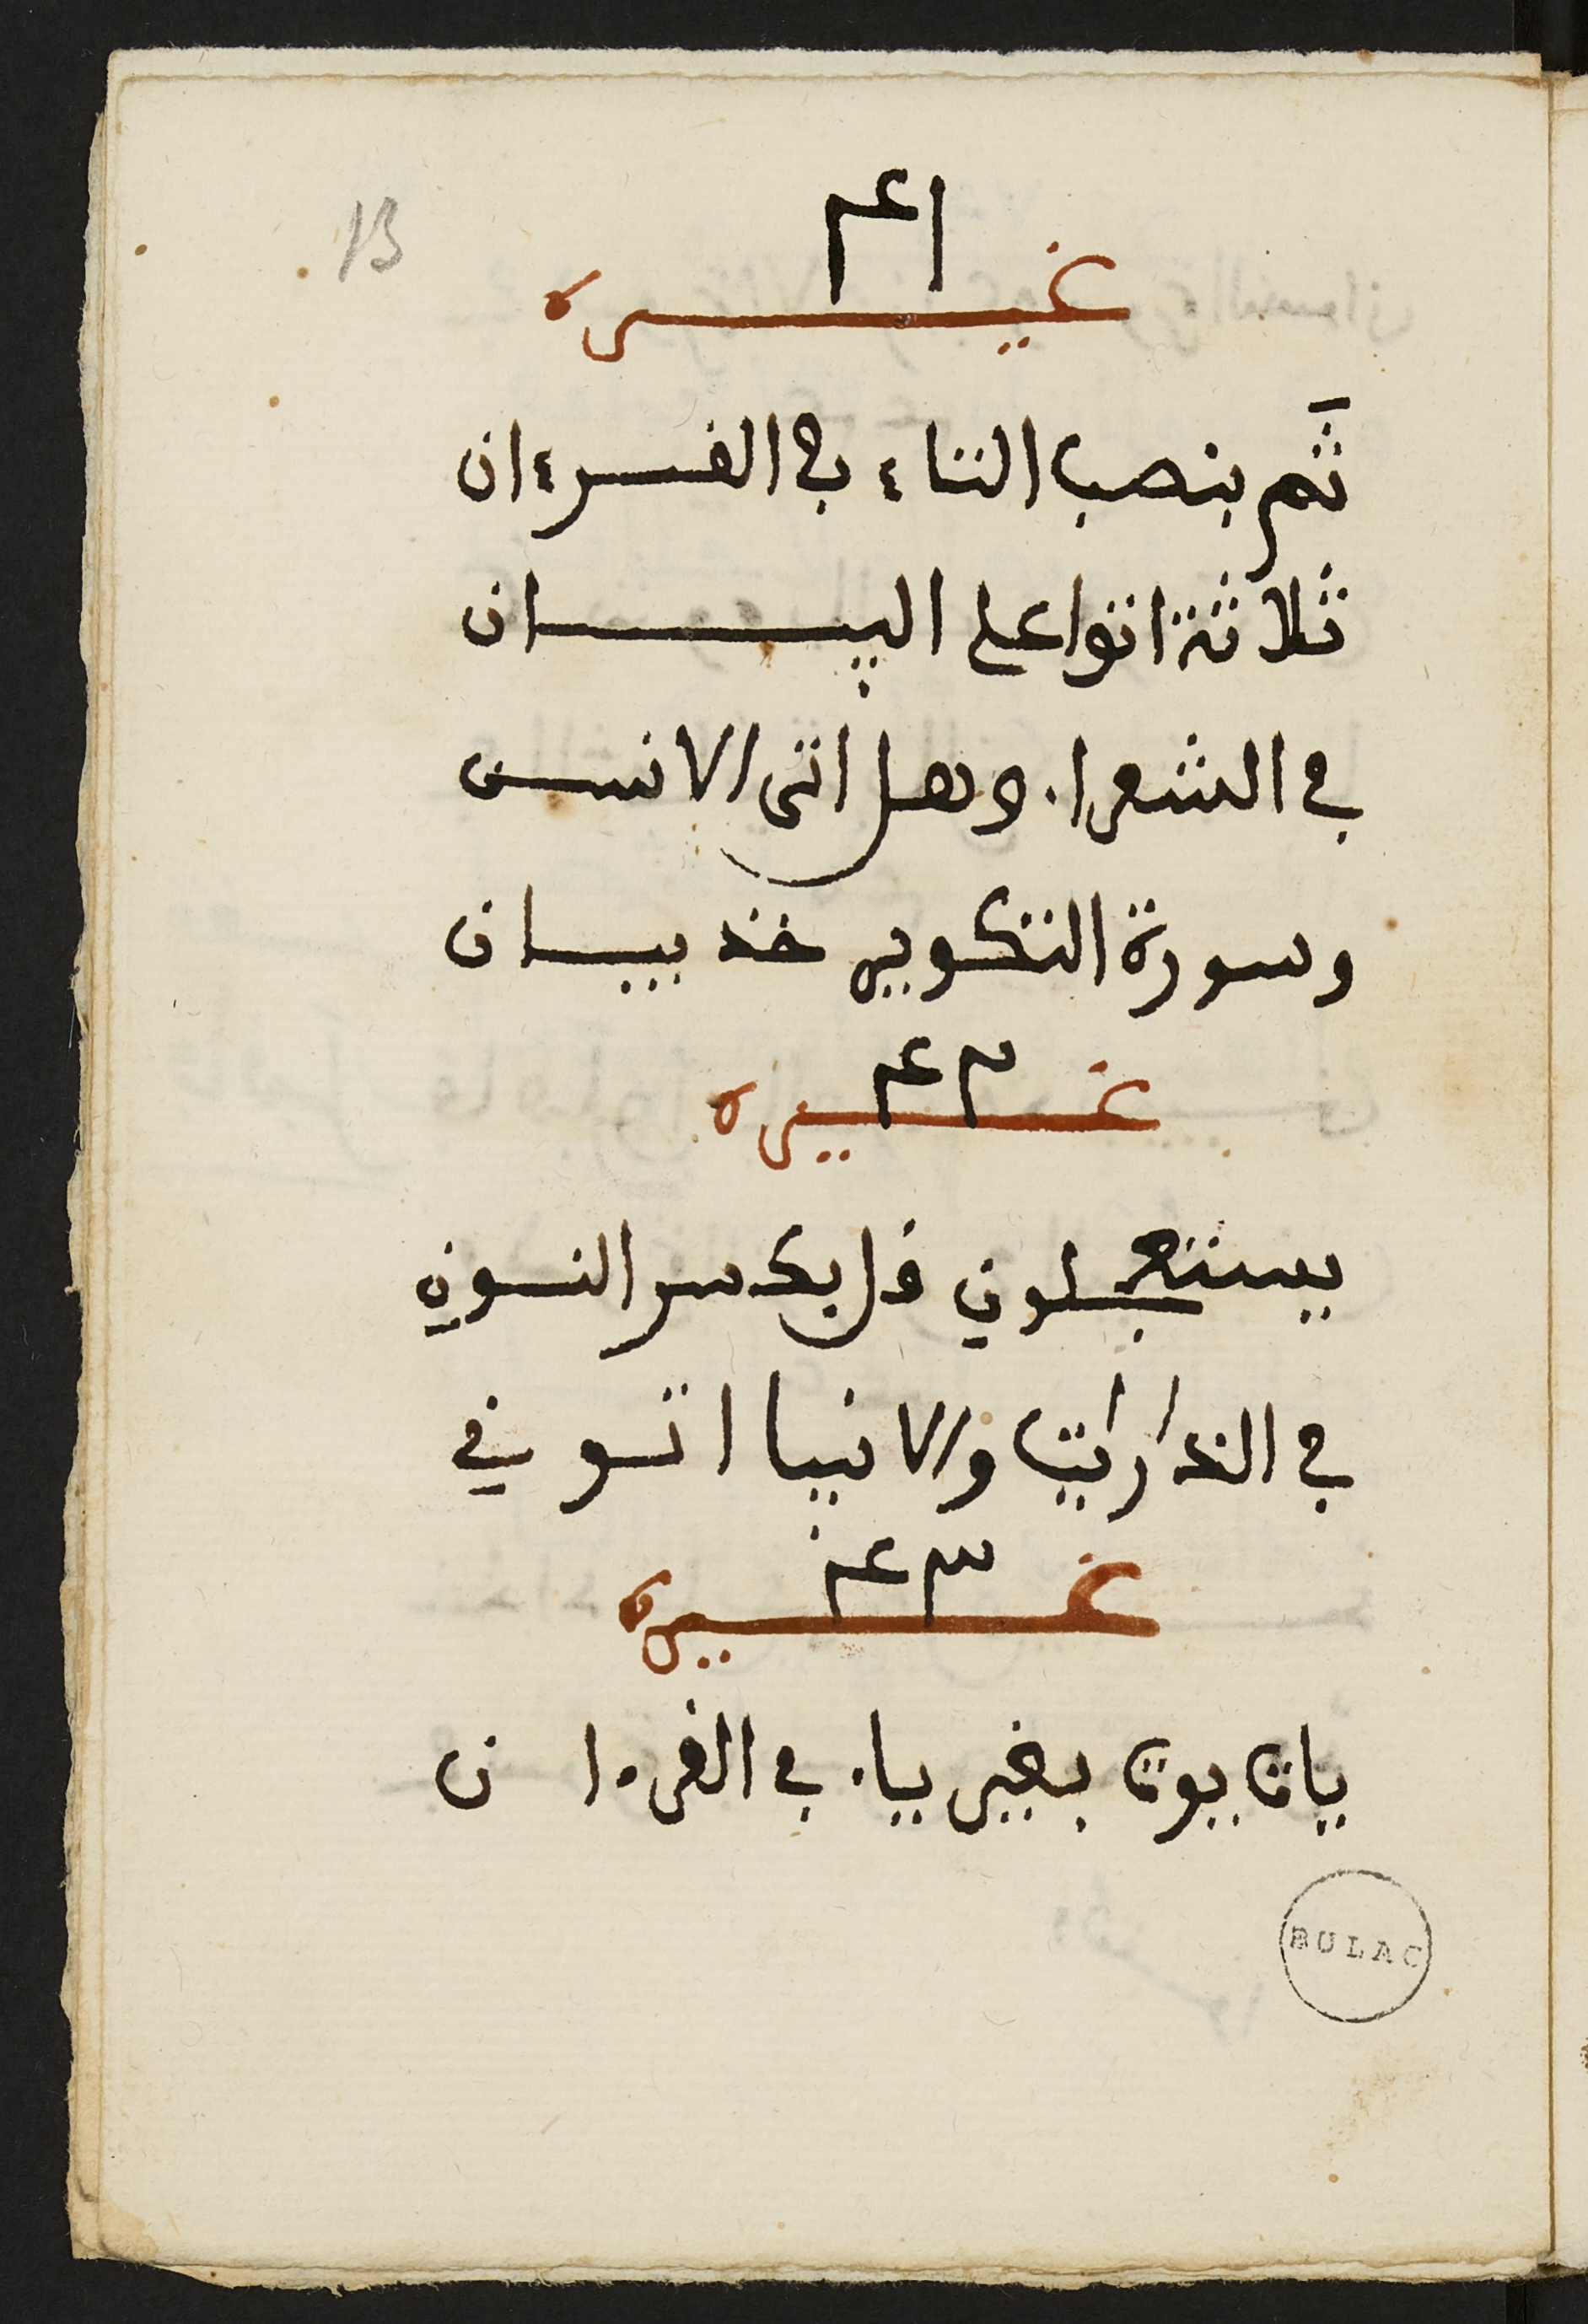 13
غيره
ثَم بنصب الثاء في القرءان
ثلاثة اتوا على البيان
في الشعراء وهل اتى الانسن
وسورة التكوير خذ بيان
غيره
يستعجلون قل بكسر النون
في الذاريات والانبيا اتو في
غيره
يات بوت بغير ياء في القرءان
BULAC